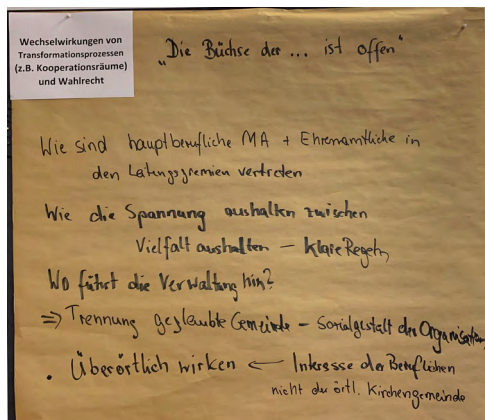 Wechselwirkungen von
Transformationsprozessen
(z.B. Kooperationsräume)
und Wahlrecht
"Die Büchse der ... ist offen"
Wie sind hauptberufliche MA + Ehrenamtliche in
den Leitungsgremien vertreten
Wie die Spannung aushalten zwischen
Vielfalt aushalten – klare Regeln
Wo führt die Verwaltung hin?
⇒ Trennung geglaubte Gemeinde – Sozialgestalt der Organisation
• Überörtlich wirken ← Interesse der Beruflichen
nicht der örtl. Kirchengemeinde